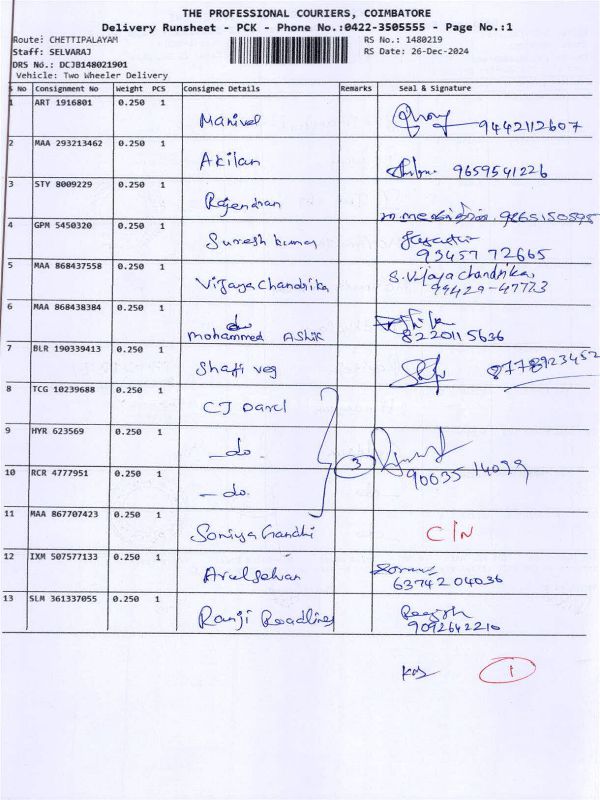 THE PROFESSIONAL COURIERS, COIMBATORE
Delivery Runsheet - PCK - Phone No.:0422-3505555 - Page No.:1
Route: CHETTIPALAYAM RS No.: 1480219
Staff: SELVARAJ RS Date: 26-Dec-2024
DRS No.: DCJB148021901
Vehicle: Two Wheeler Delivery
S No Consignment No Weight PCS Consignee Details Remarks Seal & Signature
1 ART 1916801 0.250 1
Manivel 9442112607
2 MAA 293213462 0.250 1
Akilan 9659541226
3 STY 8009229 0.250 1
Rajendran 9865150595
4 GPM 5450320 0.250 1
Suresh kumar 93457 72665
5 MAA 868437558 0.250 1
Vijaya Chandrika S. Vijaya chandrika
99429-47773
6 MAA 868438384 0.250 1
mohammed Ashik 8220115636
7 BLR 190339413 0.250 1
Shaffi veg 8778923452
8 TCG 10239688 0.250 1
CJ Darcl
9 HYR 623569 0.250 1
-do. 3
10 RCR 4777951 0.250 1
-do. 90035 14099
11 MAA 867707423 0.250 1
Soniya Gandhi C/N
12 IXM 507577133 0.250 1
Arulselvan 63742 04036
13 SLM 361337055 0.250 1
Ranji Roadlines 9092642210
1